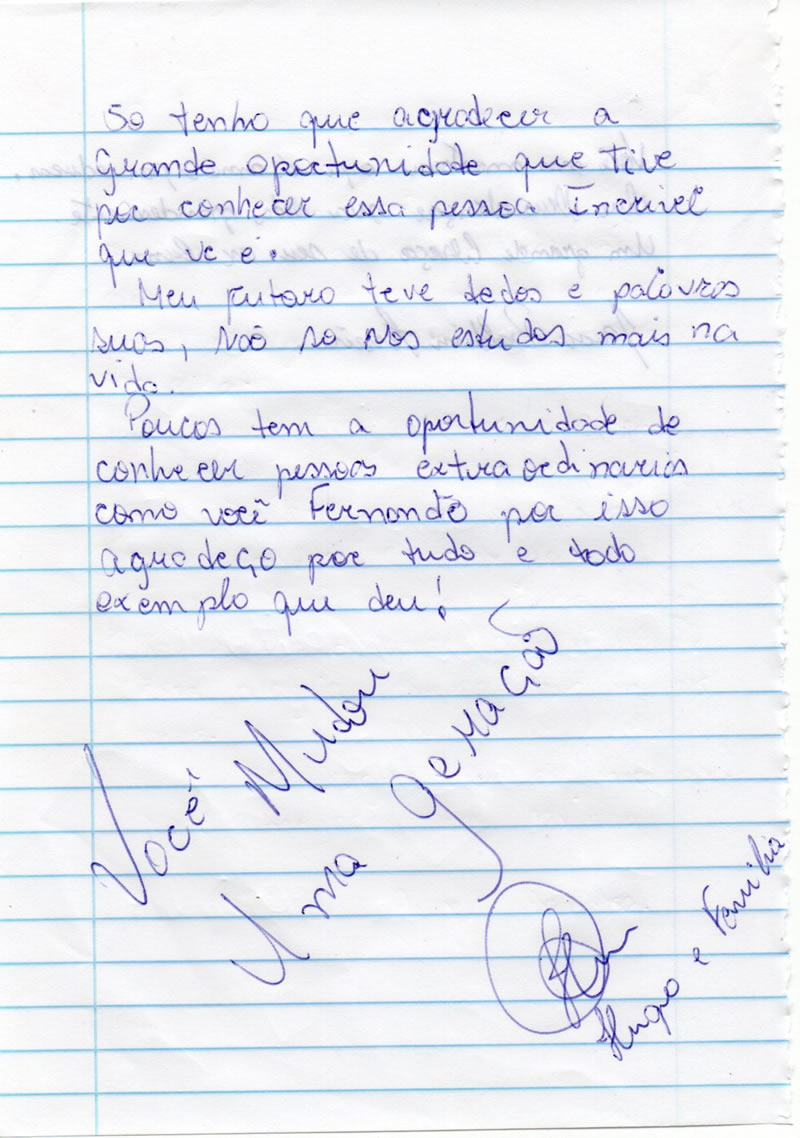 So tenho que agradecer a
Grande oportunidade que tive
por conhecer essa pessoa Incrivel
que vc é.
Meu futuro teve dedos e palavras
suas, não so nos estudos mais na
vida.
Poucos tem a oportunidade de
conhecer pessoas extraordinarias
como você Fernando por isso
agradeço por tudo e todo
exemplo que deu!
Você Mudou
Uma geração
Hugo e Familia